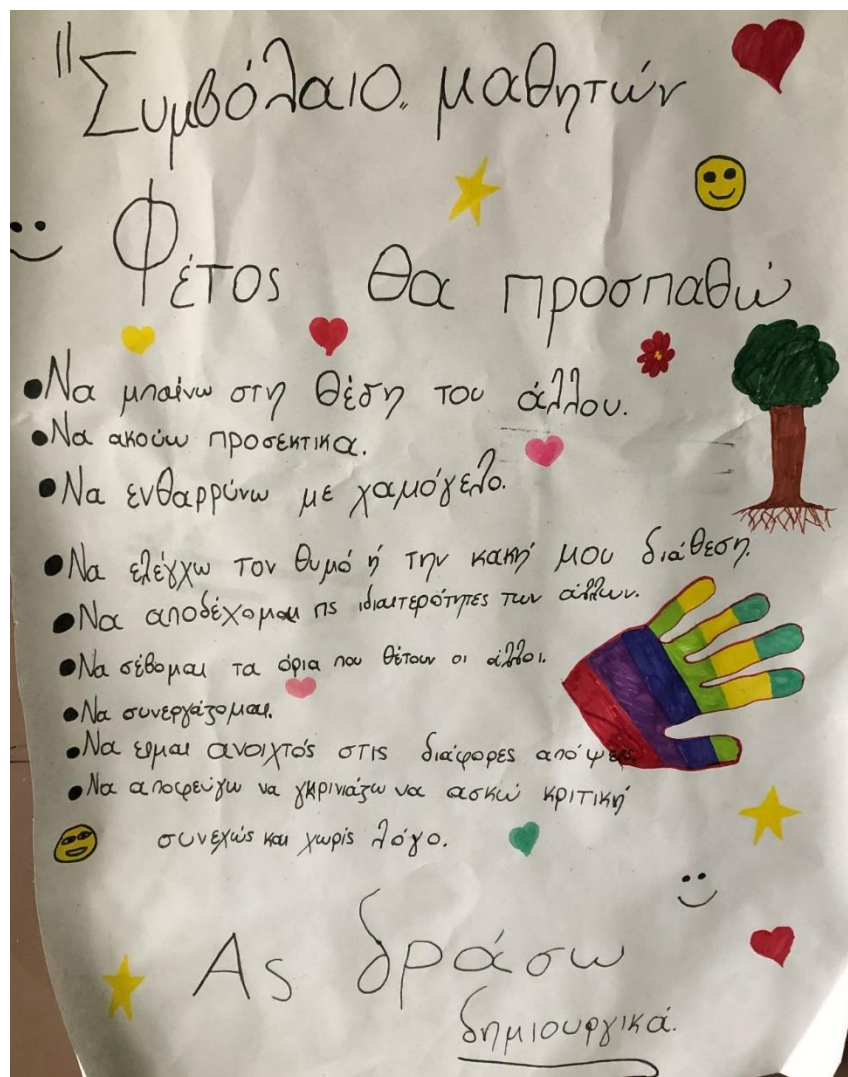 "Συμβόλαιο" μαθητών
Φέτος θα προσπαθώ
•Να μπαίνω στη θέση του άλλου.
•Να ακούω προσεκτικα.
•Να ενθαρρύνω με χαμόγελο.
•Να ελέγχω τον θυμό ή την κακή μου διάθεση.
•Να αποδέχομαι τις ιδιαιτερότητες των άλλων.
•Να σέβομαι τα όρια που θέτουν οι άλλοι.
•Να συνεργάζομαι.
•Να ειμαι ανοιχτός στις διάφορες απόψεις.
•Να αποφεύγω να γκρινιάζω να ασκώ κριτική
συνεχώς και χωρίς λόγο.
Ας δράσω
δημιουργικά.